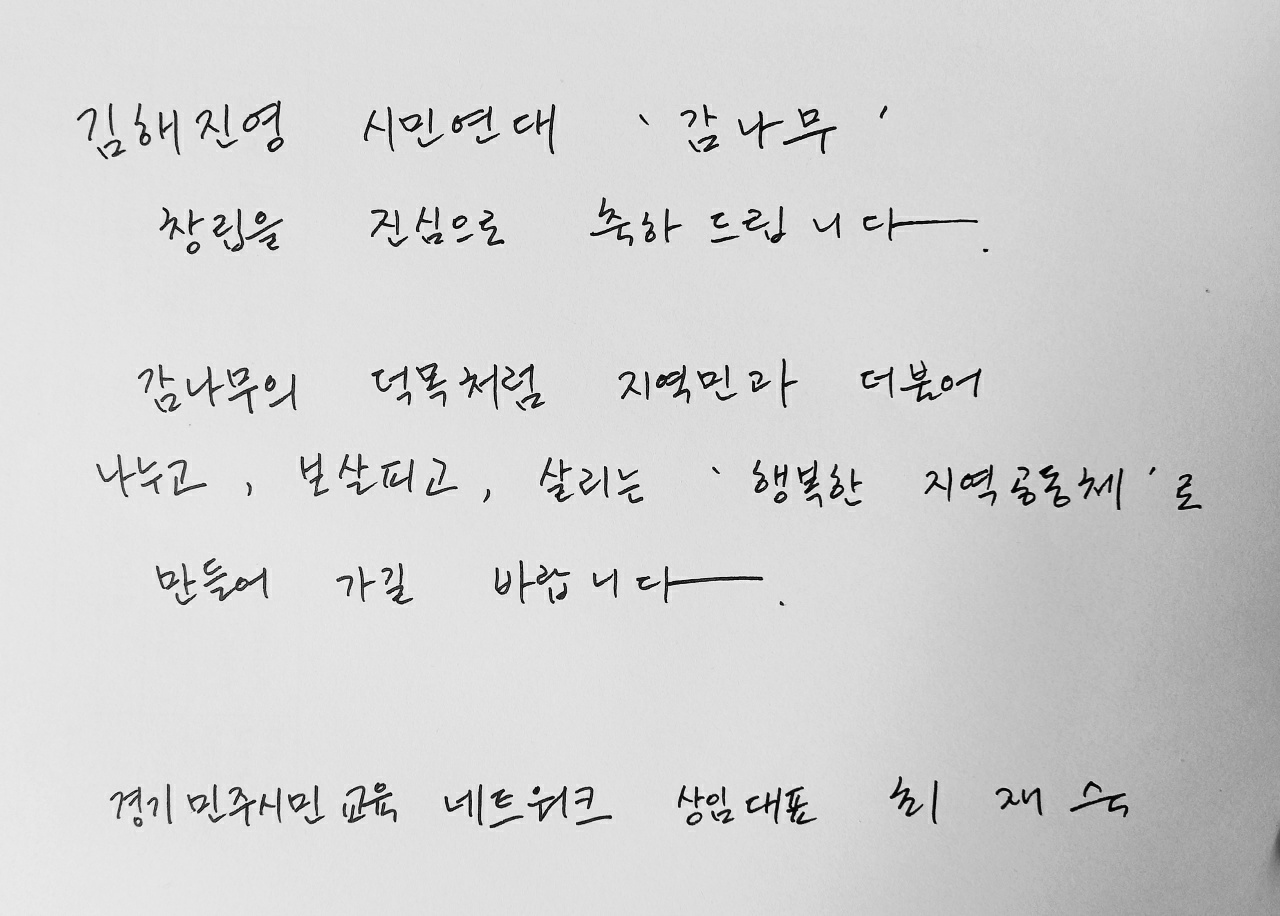 김해진영 시민연대 '감나무'
창립을 진심으로 축하드립니다.
감나무의 덕목처럼 지역민과 더불어
나누고, 보살피고, 살리는 '행복한 지역공동체'로
만들어 가길 바랍니다.
경기민주시민교육 네트워크 상임대표 최재숙